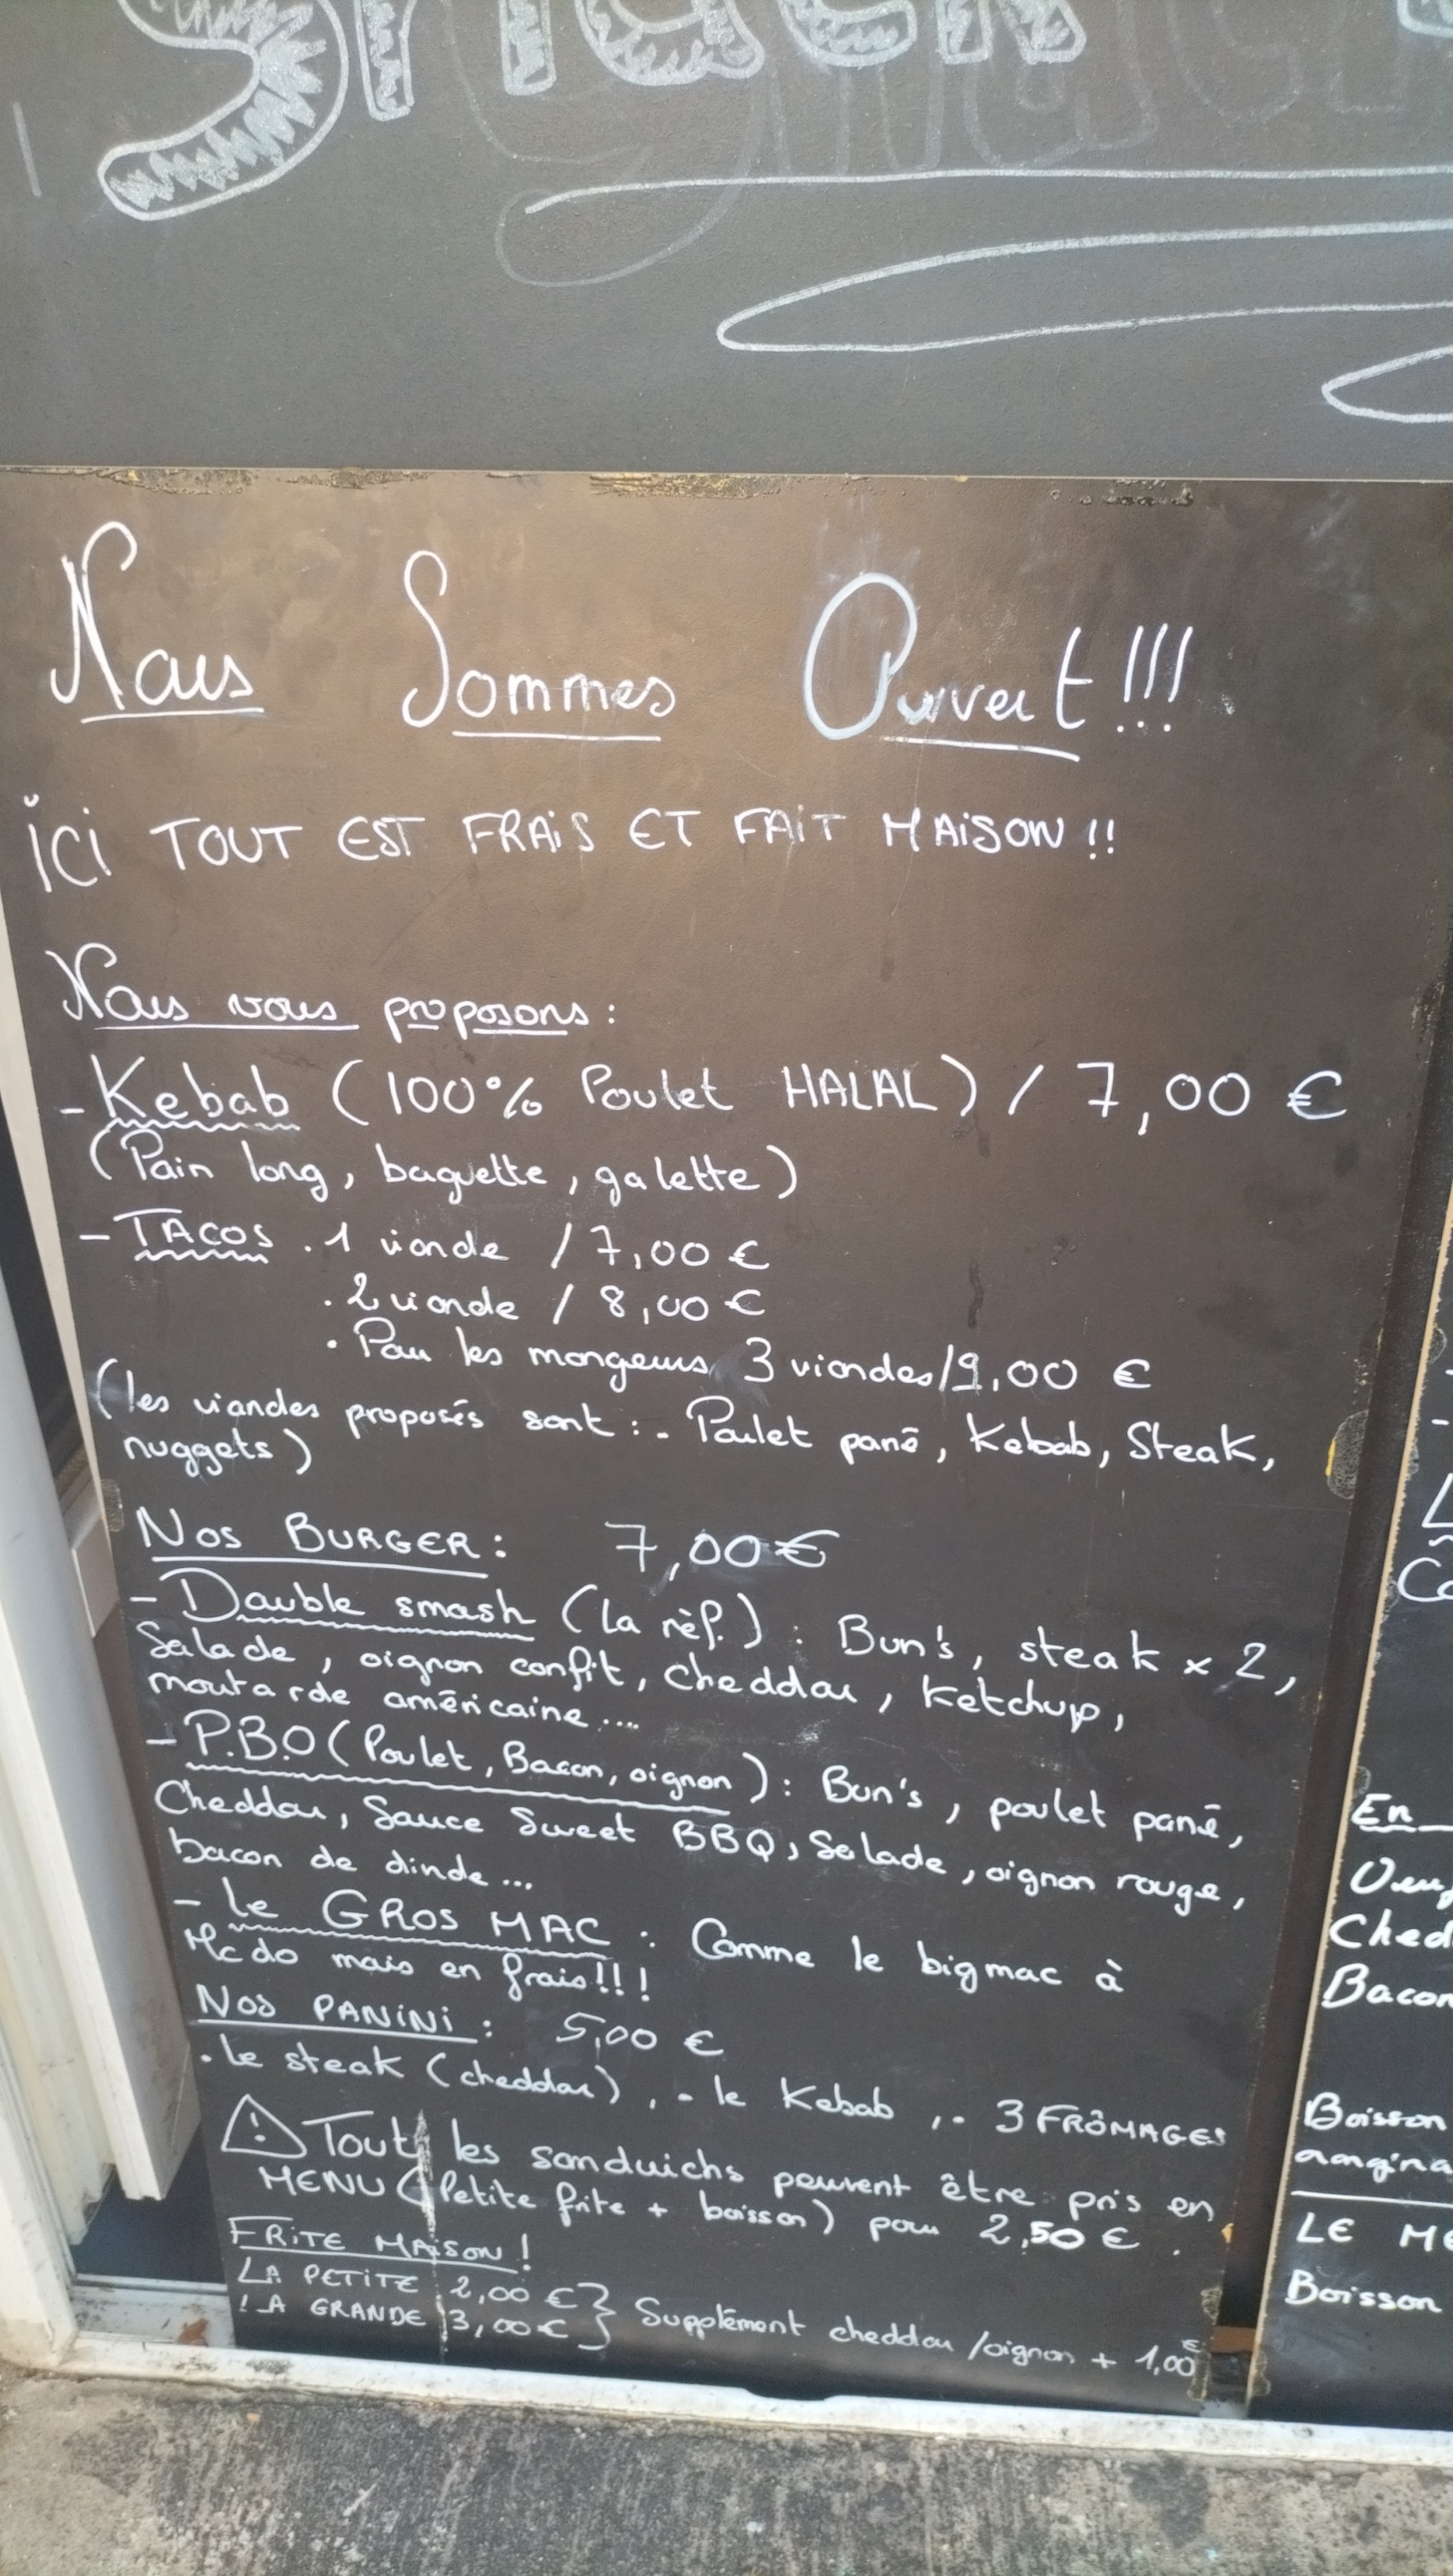 Snack
Nous Sommes Ouvert !!!
ICI TOUT EST FRAIS ET FAIT MAISON !!
Nous vous proposons :
- Kebab (100% Poulet HALAL) / 7,00 €
(Pain long, baguette, galette)
- TACOS . 1 viande / 7,00 €
. 2 viande / 8,00 €
. Pour les mangeurs 3 viandes / 9,00 €
(les viandes proposés sont : - Poulet pané, Kebab, Steak,
nuggets)
NOS BURGER : 7,00 €
- Double smash (la réf.) : Bun's, steak x 2,
Salade, oignon confit, cheddar, Ketchup,
moutarde américaine....
- P.B.O (Poulet, Bacon, oignon) : Bun's, poulet pané,
Cheddar, Sauce Sweet BBQ, Salade, oignon rouge,
bacon de dinde...
- Le GROS MAC : Comme le bigmac à
Mcdo mais en frais!!!
NOS PANINI : 5,00 €
. le steak (cheddar), - le Kebab, . 3 FRÔMAGES
⚠ Tout les sanduichs peuvent être pris en
MENU (Petite frite + boisson) pour 2,50 € .
FRITE MAISON !
LA PETITE 2,00 € }
LA GRANDE 3,00 € } Supplément cheddar / oignon + 1,00 €
En
Ched
Bacon
Boisson
LE ME
Boisson